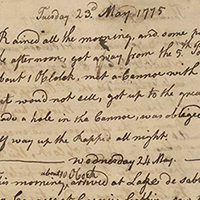 Tuesday 23d. May 1775
Rained all the morning, and some pa
he afternoon, got away from the 5th P
bout 1 O'Clock, met a Cannoe with
t woud not sell, got up to the grea
ade a hole in the Cannoe, was oblige
lf way up the Rapped all night.
Wednesday 24 May.
about 10 O Clock
is morning, arrived at Lake de sab